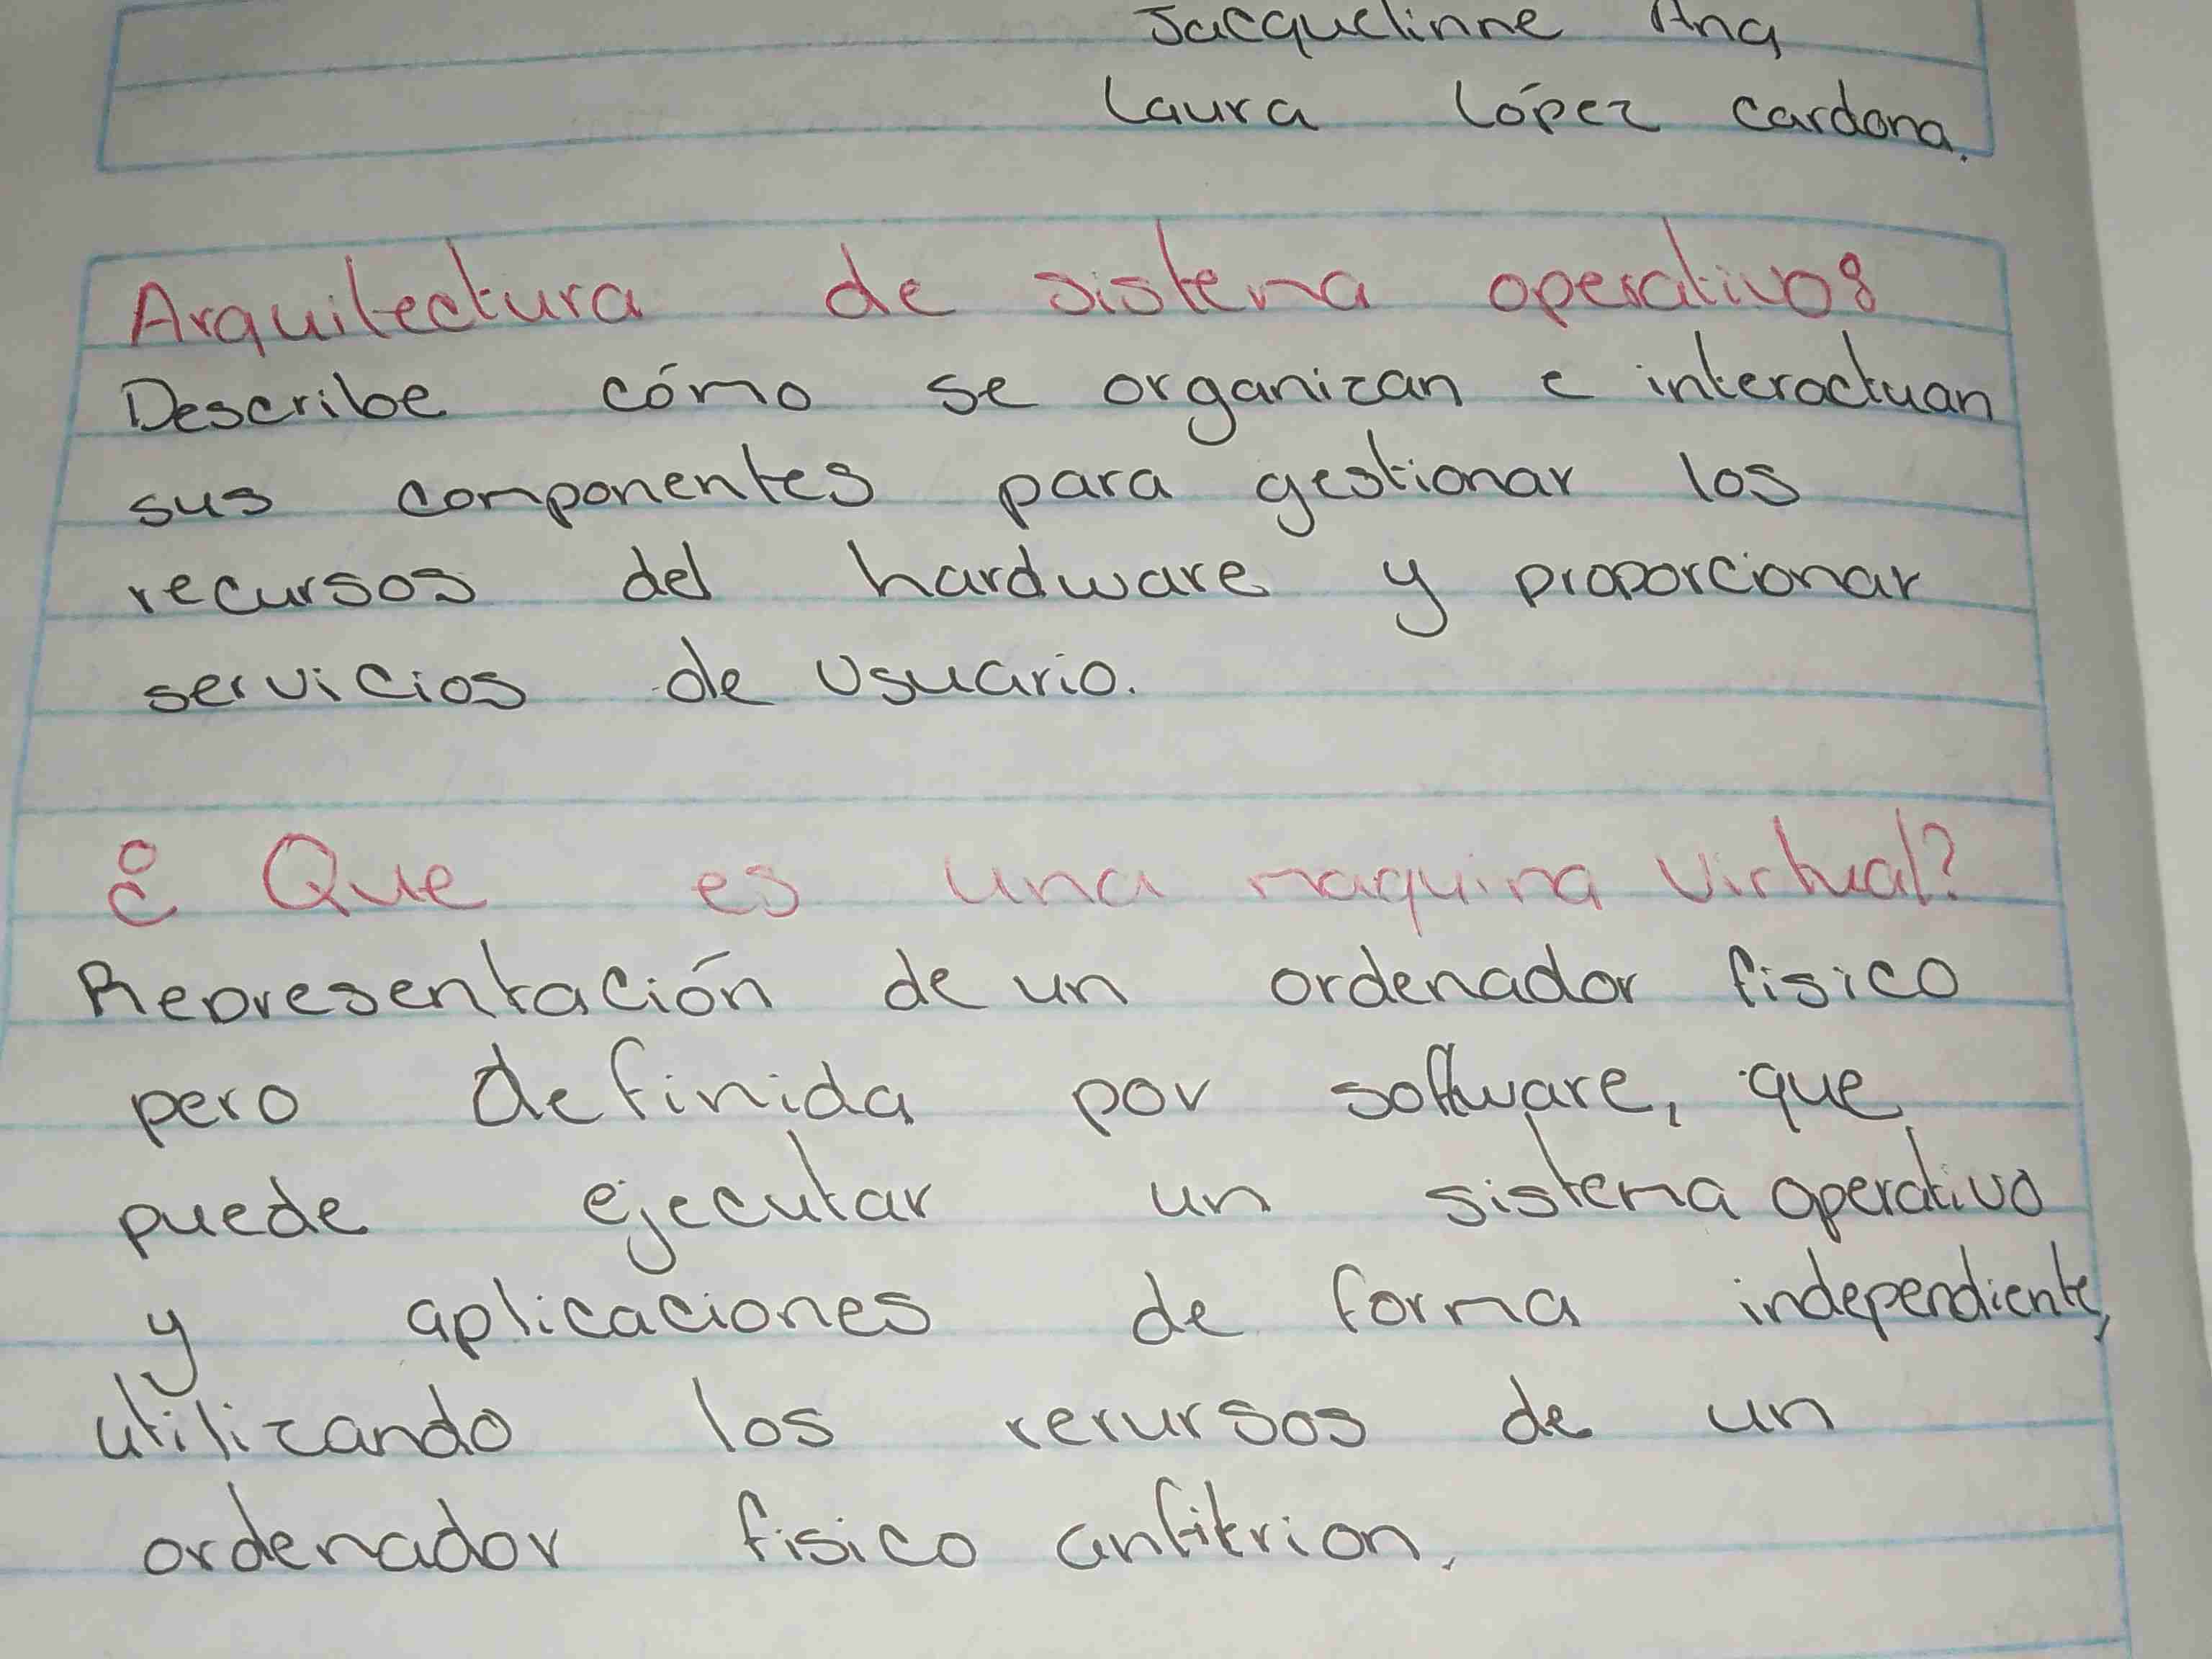 Jacquelinne Ana
Laura López Cardona.
Arquitectura de sistema operativos
Describe cómo se organizan e interactuan
sus componentes para gestionar los
recursos del hardware y proporcionar
servicios de usuario.
¿ Que es una maquina virtual?
Representación de un ordenador fisico
pero definida por software, que
puede ejecutar un sistema operativo
y aplicaciones de forma independiente,
utilizando los recursos de un
ordenador fisico anfitrion.